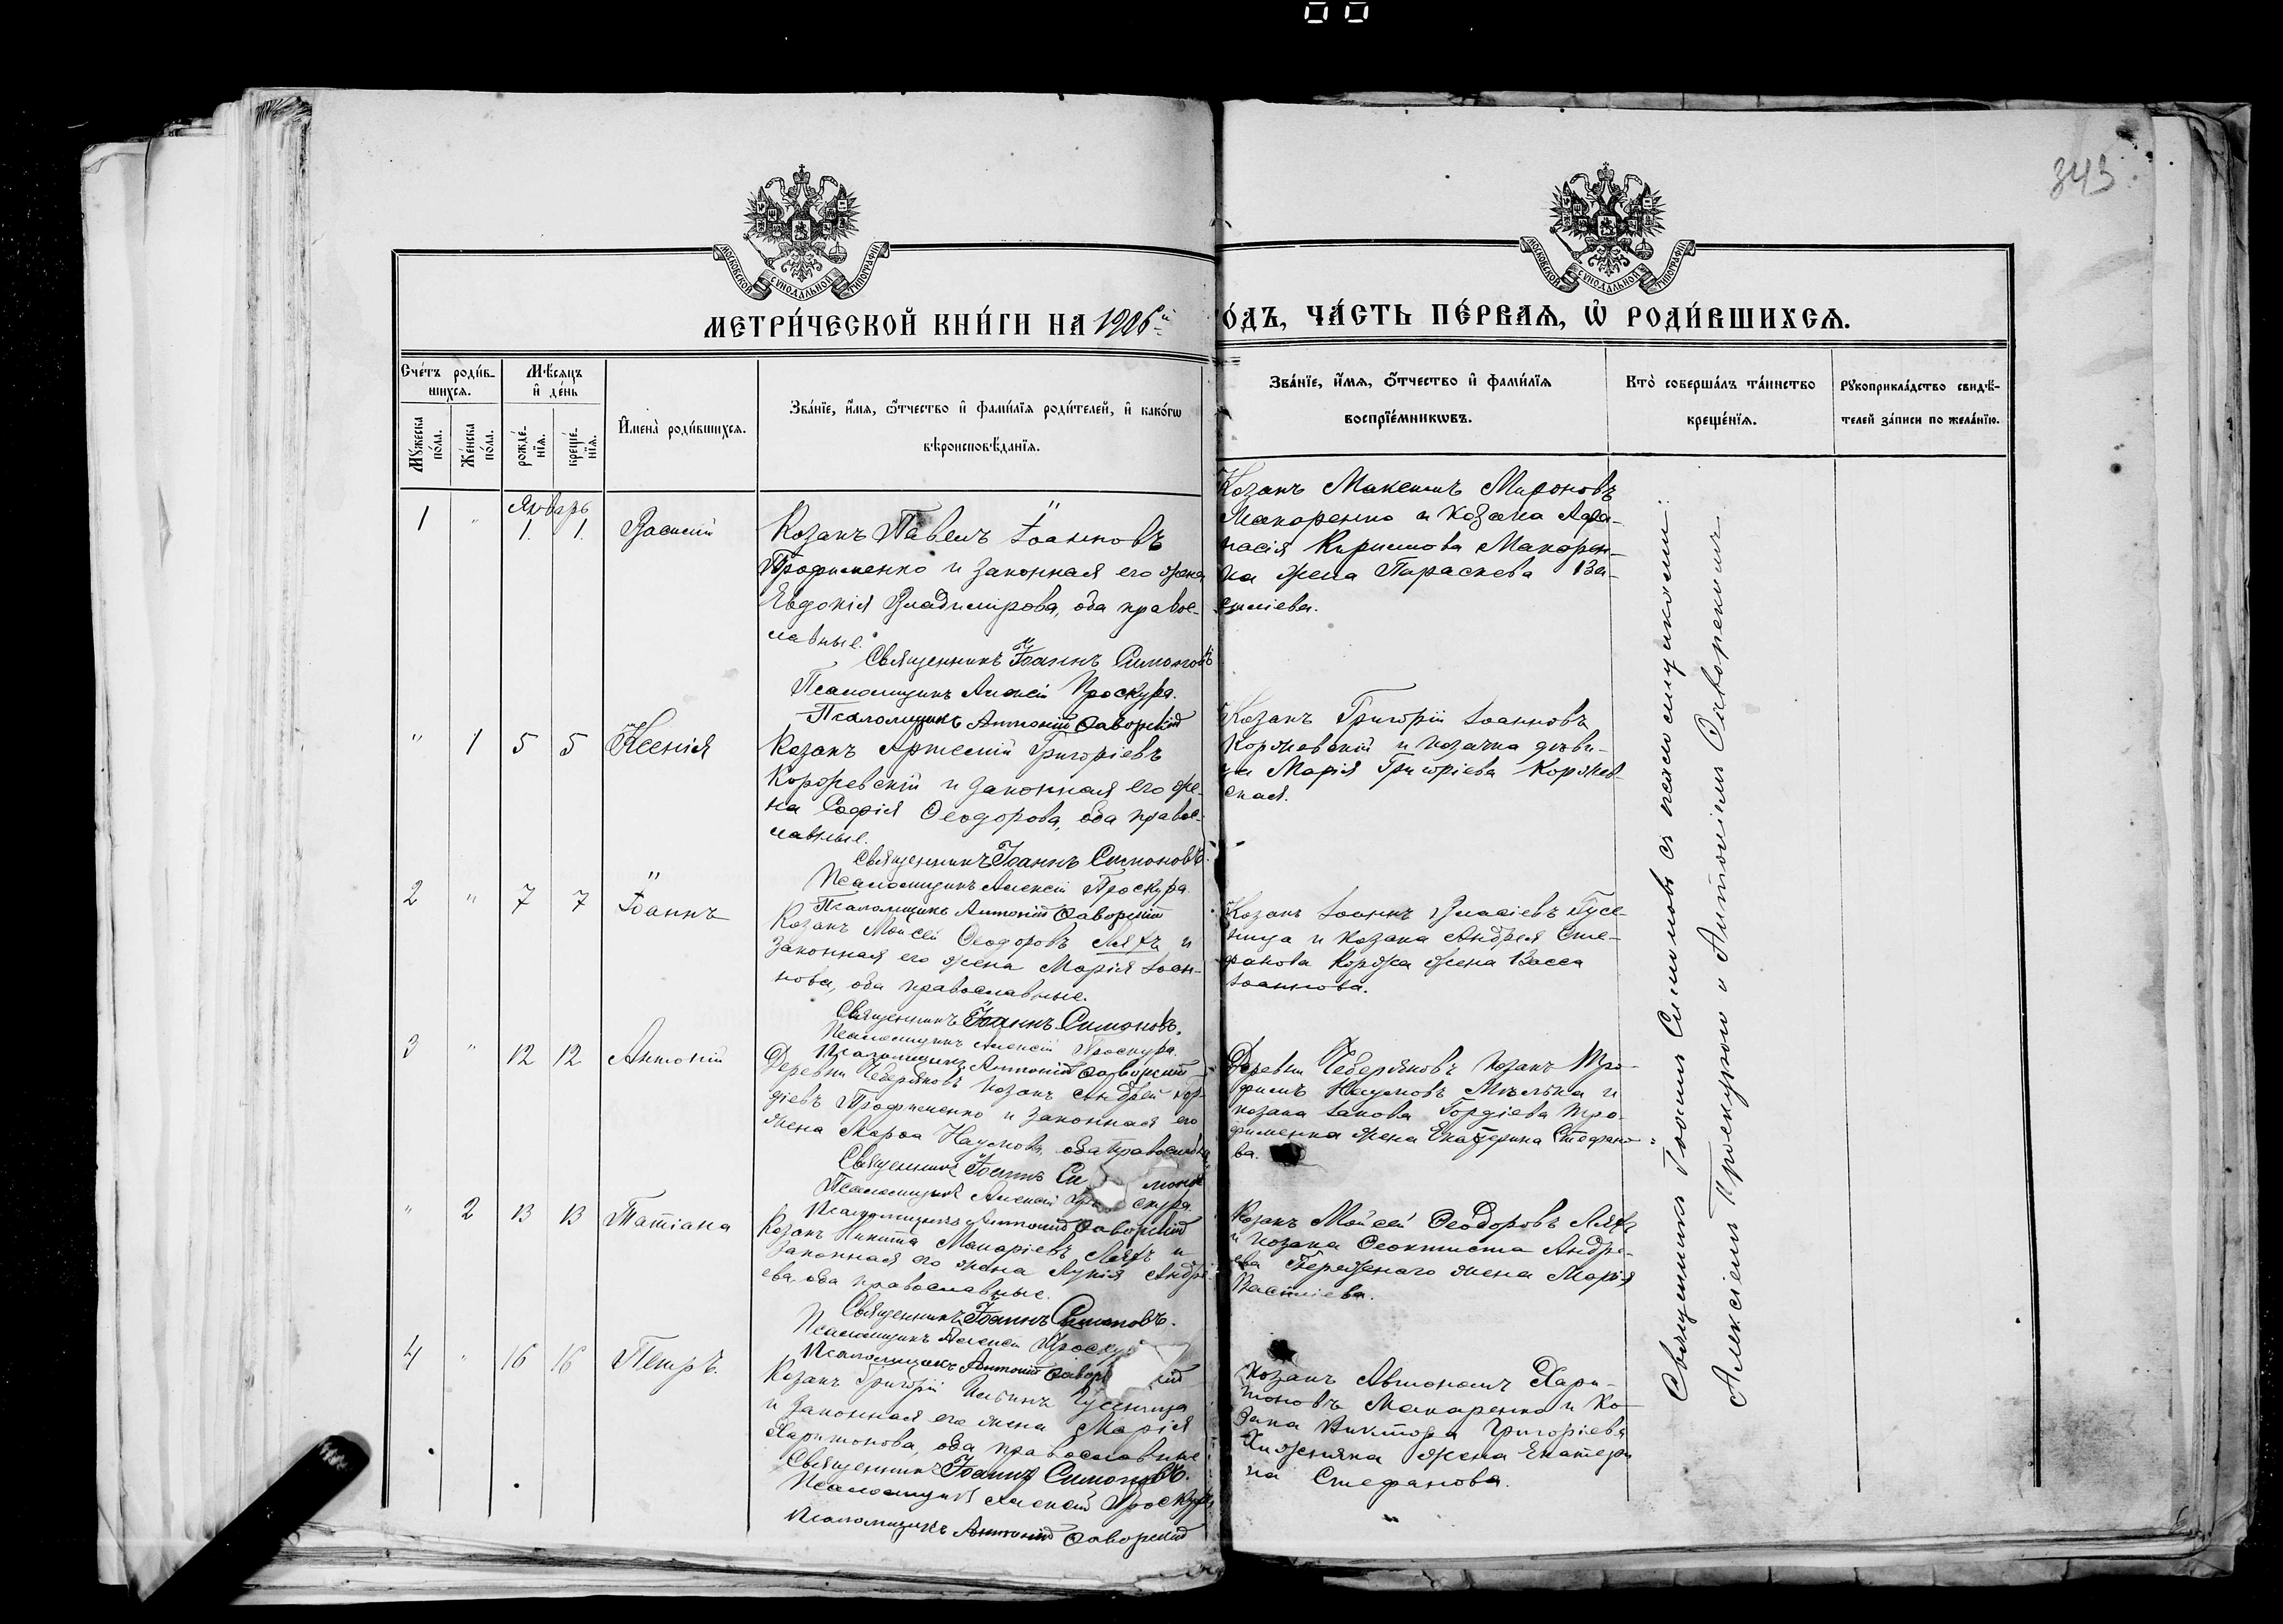 343
МОСКОВСКОЙ СѴНОДАЛЬНОЙ ТИПОГРАФІИ
МОСКОВСКОЙ СѴНОДАЛЬНОЙ ТИПОГРАФІИ
МЕТРИ́ЧЕСКОЙ КНИ́ГИ НА 1906й
О́ДЪ, ЧА́СТЬ ПЕ́РВАѦ, Ѡ҆ РОДИ́ВШИХСѦ.
Сче́тъ роди́в-
шихсѧ.
Мѣ́сѧцъ
и҆ де́нь
Мꙋ́жеска
по́ла.
Же́нска
по́ла.
рожде́-
нїѧ.
креще́-
нїѧ.
И҆мена̀ роди́вшихсѧ.
Зва́нїе, и҆́мѧ, ѻ҆́тчество и҆ фами́лїѧ роди́телей, и҆ како́гѡ
вѣроисповѣ́данїѧ.
Зва́нїе, и҆́мѧ, ѻ҆́тчество и҆ фами́лїѧ
воспрїе́мникѡвъ.
Кто̀ соверша́лъ та́инство
креще́нїѧ.
Рꙋкоприкла́дство свидѣ́-
телей за́писи по жела́нїю.
Январь
1 " 1. 1. Василій
Козакъ Павелъ Іоанновъ
Трофименко и законная его жена
Евдокія Владимірова, оба право-
славные.
Священникъ Іоаннъ Симоновъ
Псаломщикъ Алексій Проскура.
Псаломщикъ Антоній Саворскій
Козакъ Максимъ Мироновъ
Макаренко и козака Афа-
насія Кириллова Макарен-
ка жена Параскева Ва-
силіева.
" 1 5 5 Ксенія
Козакъ Артемій Григоріевъ
Коржевскій и законная его же-
на Софія Ѳеодорова, оба право-
славные.
Священникъ Іоаннъ Симоновъ.
Псаломщикъ Алексій Проскура.
Псаломщикъ Антоній Саворскій
Козакъ Григорій Іоанновъ
Коржевскій и козачка дѣви-
ца Марія Григоріева Коржев-
ская.
2 " 7 7 Іоаннъ
Козакъ Моисей Ѳеодоровъ Ляхъ и
законная его жена Марія Іоан-
нова, оба православные.
Священникъ Іоаннъ Симоновъ.
Псаломщикъ Алексій Проскура.
Псаломщикъ Антоній Саворскій
Козакъ Іоаннъ Власіевъ Гусе-
ница и козака Андрея Сте-
фанова Коржа жена Васса
Іоаннова.
3 " 12 12 Антоній
Деревни Чеберяковъ козакъ Андрей Гор-
діевъ Трофименко и законная его
жена Марѳа Наумова, оба православные
Священникъ Іоаннъ Симоновъ
Псаломщикъ Алексій Проскура.
Псаломщикъ Антоній Саворскій
Деревни Чеберяковъ козакъ Тро-
фимъ Наумовъ Мѣлька и
козака Іакова Гордіева Тро-
фименка жена Екатерина Стефано-
ва.
" 2 13 13 Татіана
Козакъ Никита Макаріевъ Ляхъ и
законная его жена Лукія Андре-
ева, оба православные.
Священникъ Іоаннъ Симоновъ.
Псаломщикъ Алексій Проскур
Псаломщикъ Антоній Саворскій
Козакъ Моисей Ѳеодоровъ Ляхъ
и козака Ѳеоктиста Андре-
ева Бережнаго жена Марія
Васіліева.
4 " 16 16 Петръ.
Козакъ Григорій Ильинъ Гусеница
и законная его жена Марія
Харитонова, оба православные
Священникъ Іоаннъ Симоновъ.
Псаломщикъ Алексій Проскура
Псаломщикъ Антоній Саворскій
Козакъ Автономъ Хари-
тоновъ Макаренко и ко-
зака Виктора Григоріева
жена Екатери
на Стефанова.
Священникъ Іоаннъ Симоновъ съ псаломщиками:
Алексіемъ Проскурою и Антоніемъ Саворскимъ.